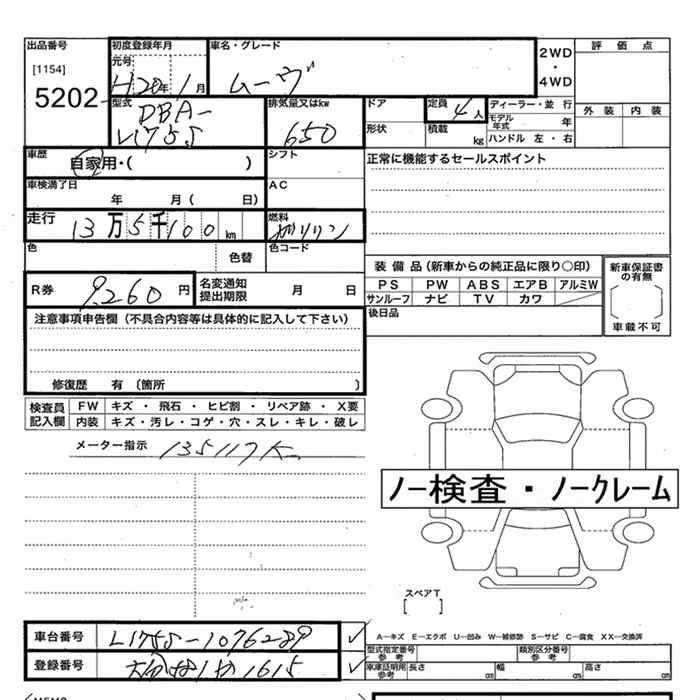 出品番号
[1154]
5202
初度登録年月
元号
H20年 1月
車名・グレード
ムーヴ
2WD
・
4WD
評価点
外装 内装
型式
DBA-
L175S
排気量又はkw
650
ドア
形状
定員
4人
積載
kg
ディーラー・並行
モデル年式 年
ハンドル 左・右
車歴
自家用・( )
シフト
正常に機能するセールスポイント
車検満了日
年 月( 日)
AC
走行
13万5千100km
燃料
ガソリン
色
色替
色コード
R券
9,260円
名変通知
提出期限
月 日
装備品(新車からの純正品に限り○印)
PS PW ABS エアB アルミW
サンルーフ ナビ TV カワ
後日品
新車保証書
の有無
車載不可
注意事項申告欄(不具合内容等は具体的に記入して下さい)
修復歴 有〔箇所 〕
検査員
記入欄
FW キズ・飛石・ヒビ割・リペア跡・X要
内装 キズ・汚レ・コゲ・穴・スレ・キレ・破レ
メーター指示 135117K
ノー検査・ノークレーム
スペアT
[ ]
車台番号 L175S-1076289
登録番号
1615
A―キズ E―エクボ U―凹み W―補修跡 S―サビ C―腐食 XX―交換済
型式指定番号
参考
類別区分番号
参考
車庫証明用
参考
長さ cm 幅 cm 高さ cm
MEMO